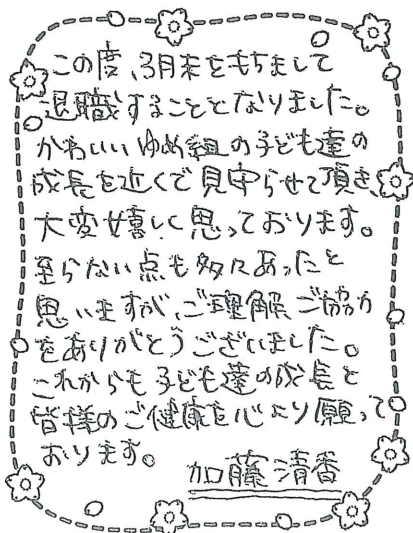 この度、3月末をもちまして
退職することとなりました。
かわいいゆめ組の子ども達の
成長を近くで見守らせて頂き、
大変嬉しく思っております。
至らない点も多々あったと
思いますが、ご理解ご協力
をありがとうございました。
これからも子ども達の成長と
皆様のご健康を心より願って
おります。
加藤清香